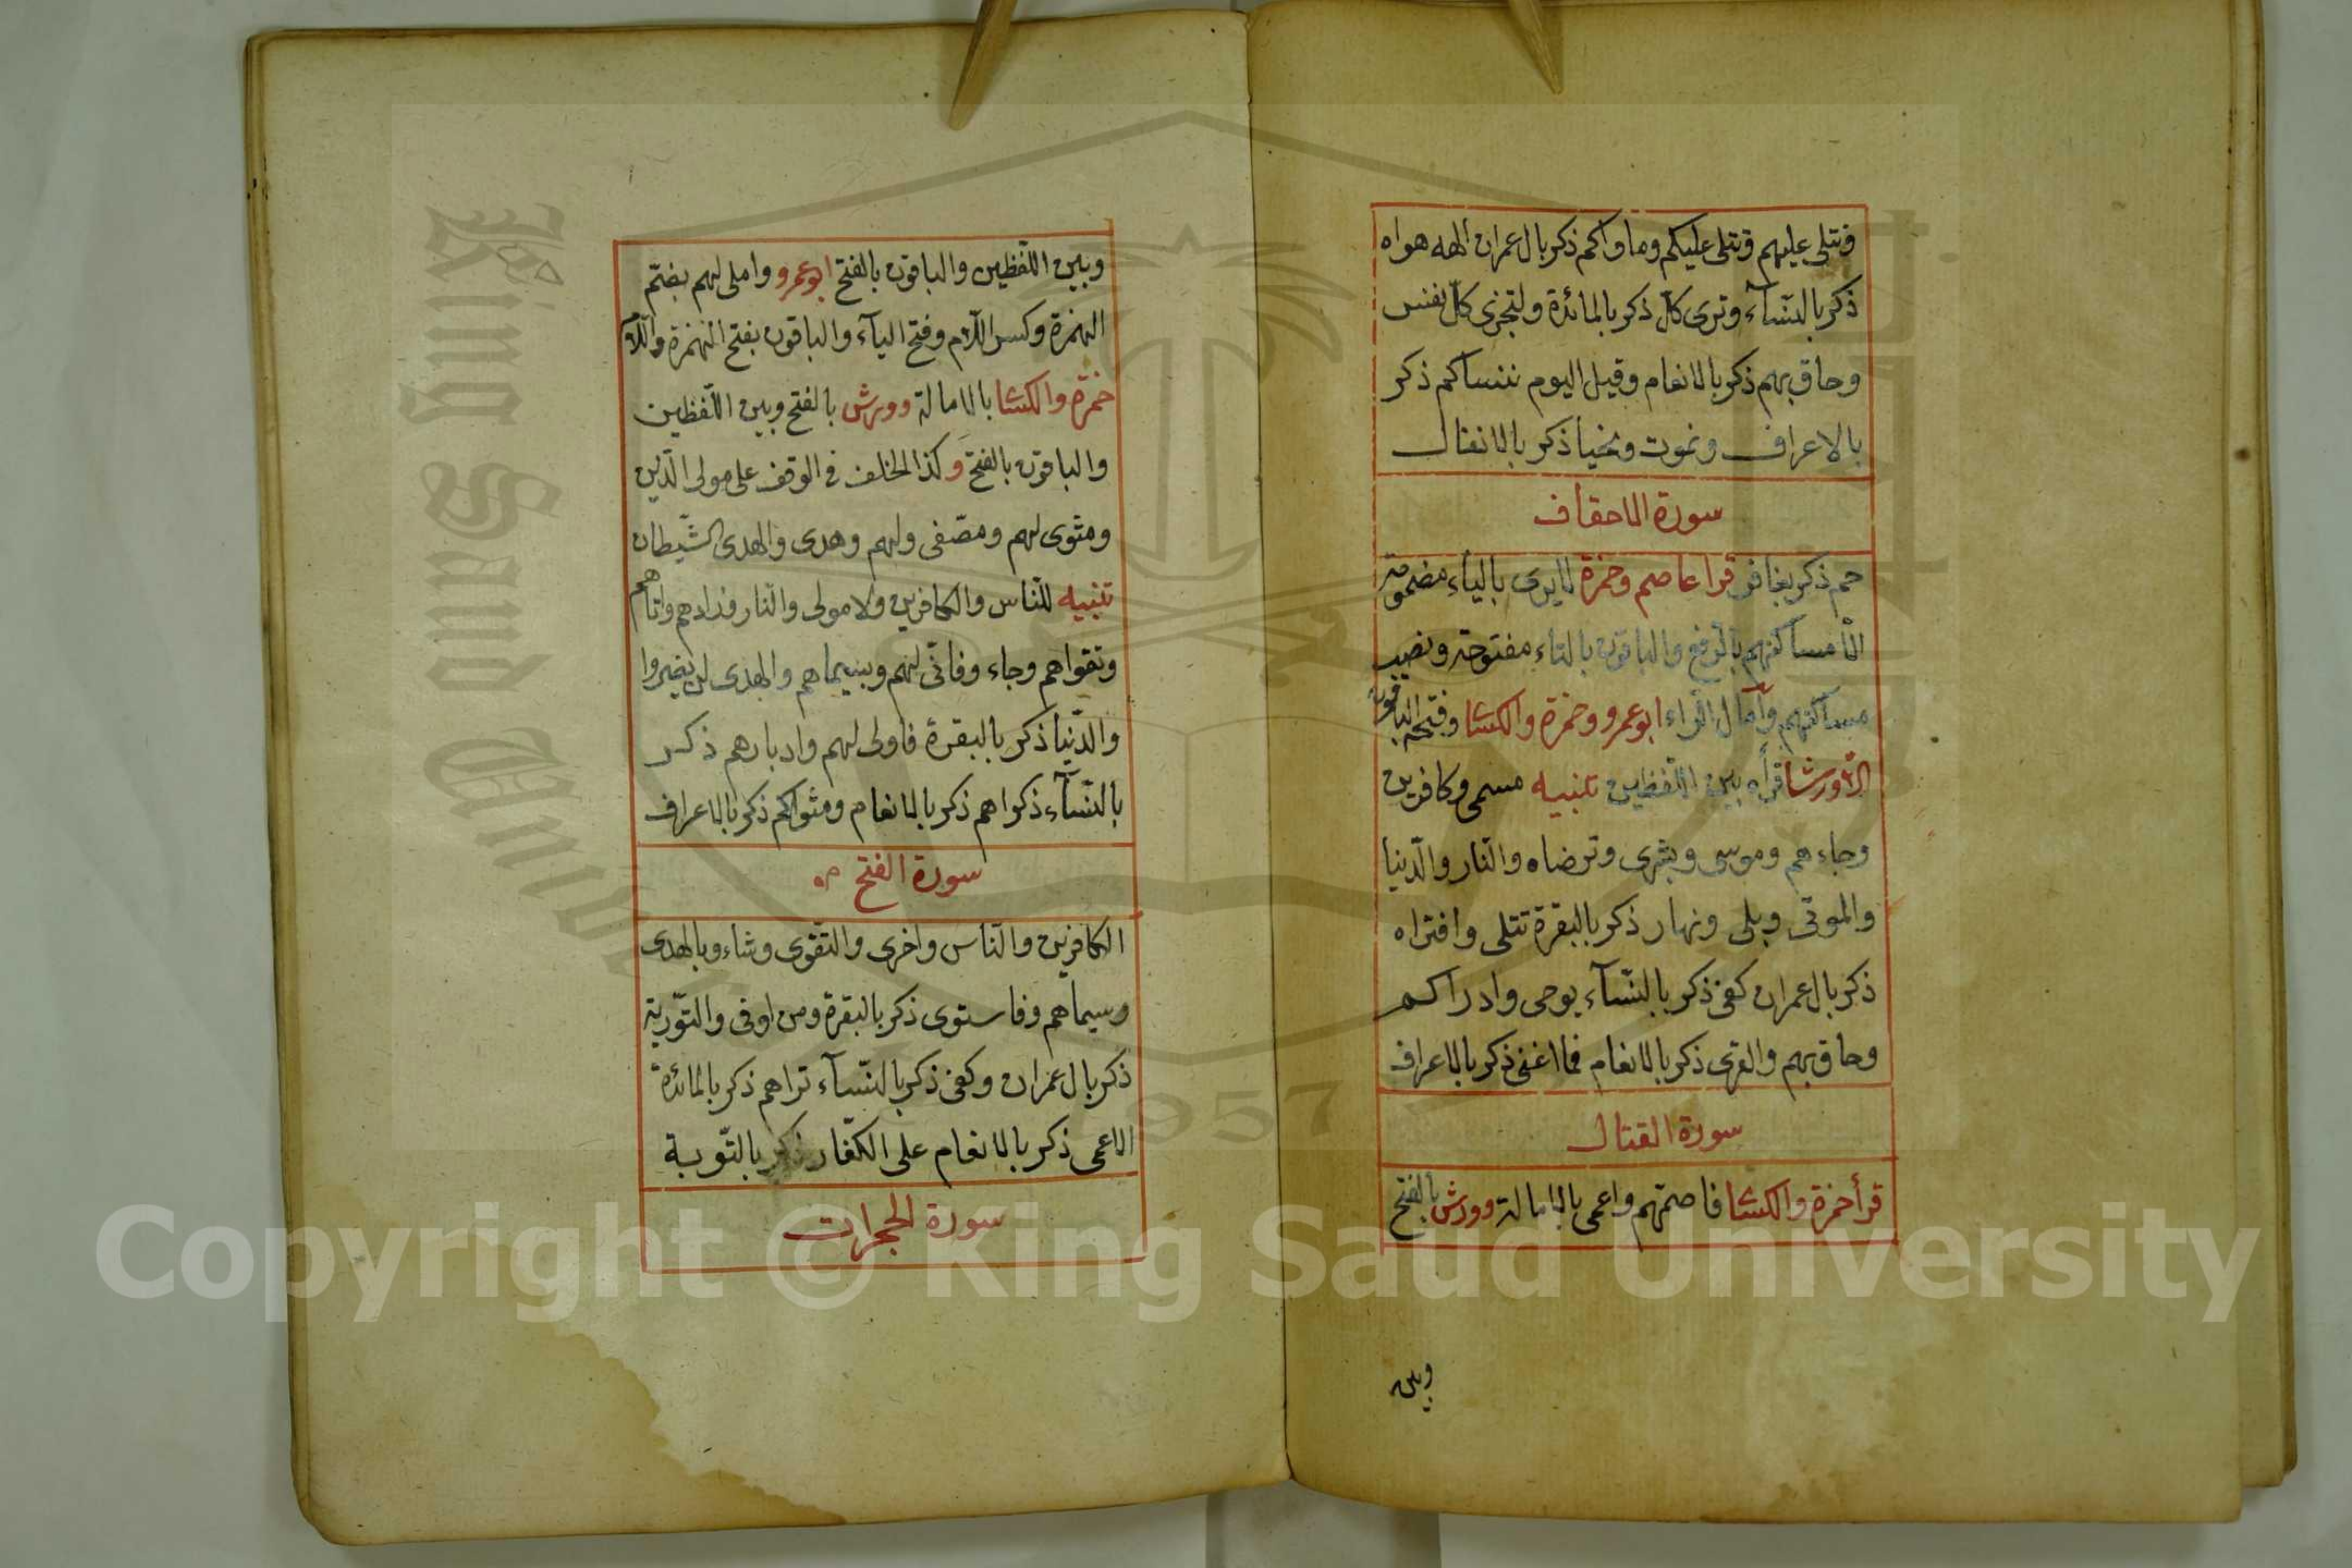 فتتلى عليهم وتتلى عليكم وماواكم ذكر بال عمران الهه هواه
ذكر بالنسآء وترى كل ذكر بالمائدة ولتجزى كل نفس
وحاق بهم ذكر بالانعام وقيل اليوم ننساكم ذكر
بالاعراف ونموت ونحيا ذكر بالانفال
سورة الاحقاف
حم ذكر بغافر قرا عاصم وحمزة لايرى بالياء مضمومة
الا مساكنهم بالرفع والباقون بالتاء مفتوحة ونصب
مساكنهم وآمال الراء ابو عمرو وحمزة والكسا وفتحه الباقون
الا ورشا قراه بين اللفظين تنبيه مسمى وكافرين
وجاءهم وموسى وبشرى وترضاه والنار والدنيا
والموتى وبلى ونهار ذكر بالبقرة تتلى وافتراه
ذكر بال عمران كفى ذكر بالنسآء يوحى وادراكم
وحاق بهم والقرى ذكر بالانعام فما اغنى ذكر بالاعراف
سورة القتال
قرأ حمزة والكسا فاصمهم واعمى بالامالة وورش بالفتح
وبين
وبين اللفظين والباقون بالفتح ابو عمرو واملى لهم بضم
الهمزة وكسر اللام وفتح اليآء والباقون بفتح الهمزة واللام
حمزة والكسا بالامالة وورش بالفتح وبين اللفظين
والباقون بالفتح وكذا الخلف في الوقف على مولى الذين
ومثوى لهم ومصفى ولهم وهدى والهدى الشيطان
تنبيه للناس والكافرين ولا مولى والنار وزادهم واتاهم
وتقواهم وجاء وفانى لهم وبسيماهم والهدى لن يضروا
والدنيا ذكر بالبقرة فاولى لهم وادبارهم ذكر
بالنسآء ذكراهم ذكر بالانعام ومثواكم ذكر بالاعراف
سورة الفتح
الكافرين والناس واخرى والتقوى وشاء وبالهدى
وسيماهم وفاستوى ذكر بالبقرة ومن اوفى والتورية
ذكر بال عمران وكفى ذكر بالنسآء تراهم ذكر بالمائدة
الاعمى ذكر بالانعام على الكفار ذكر بالتوبة
سورة الحجرات
King Saud University
1957
Copyright © King Saud University